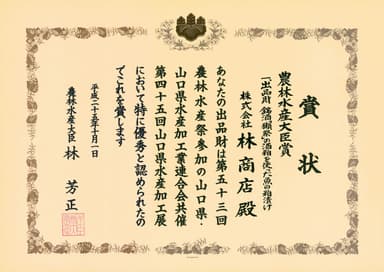 賞状
農林水産大臣賞
株式会社 林商店殿
あなたの出品財は第五十三回
農林水産祭参加の山口県・
山口県水産加工業連合会共催
第四十五回山口県水産加工展
において特に優秀と認められたの
でこれを賞します
平成二十五年十月一日
農林水産大臣 林 芳正